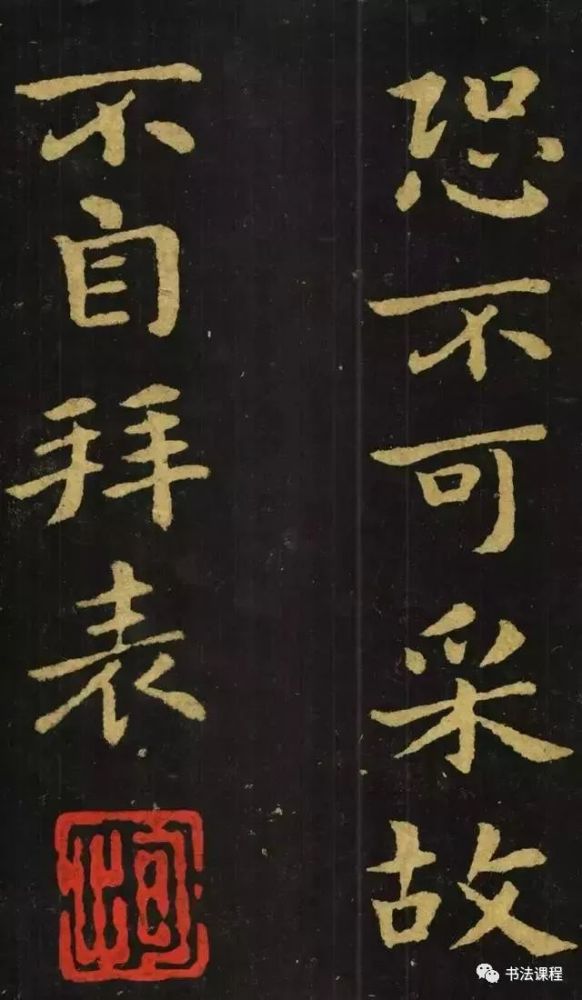 恐不可采故
不自拜表
书法课程